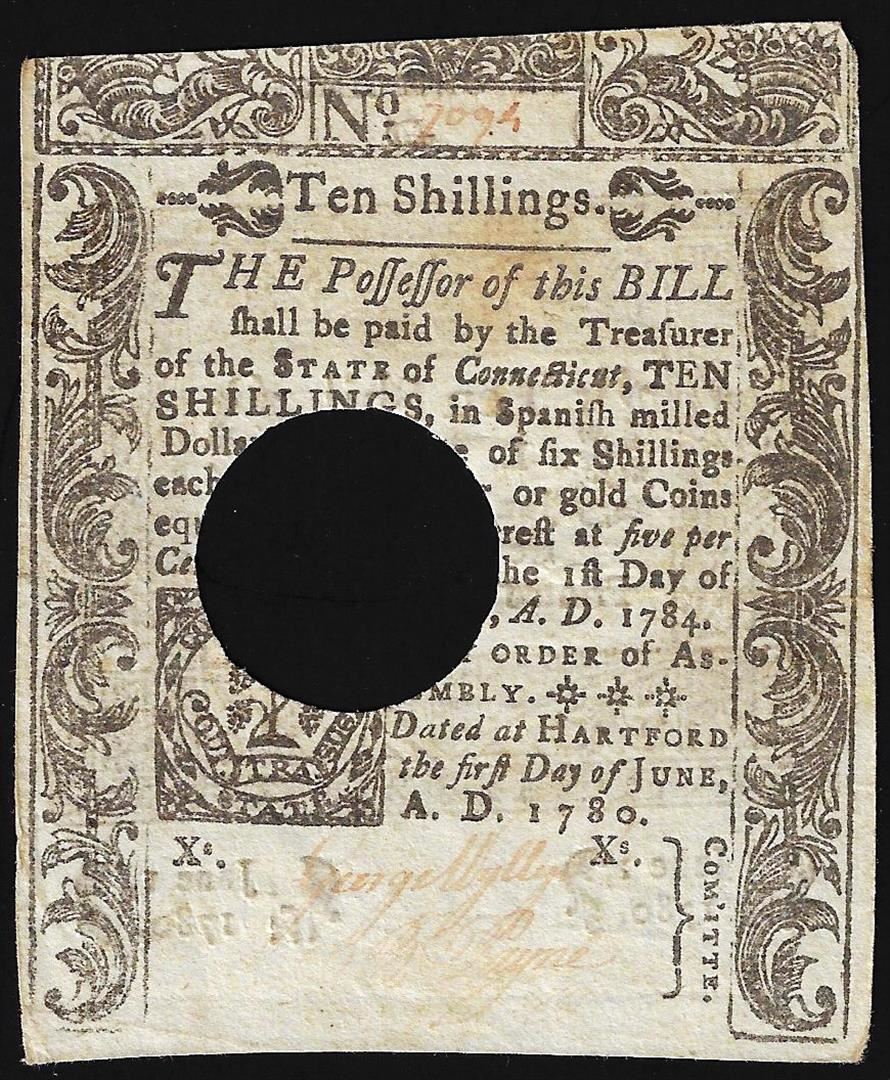 No. 7094
Ten Shillings.
THE Poſſeſſor of this BILL
ſhall be paid by the Treaſurer
of the STATE of Connecticut, TEN
SHILLINGS, in Spaniſh milled
Dolla e of ſix Shillings
each r or gold Coins
equ reſt at five per
Ce he 1ſt Day of
, A. D. 1784.
ORDER of As-
MBLY.
Dated at HARTFORD
the firſt Day of JUNE,
A. D. 1780.
QUI TRA SUS
STATE
Xs. Xs.
George Wyllys
COM'ITTE.